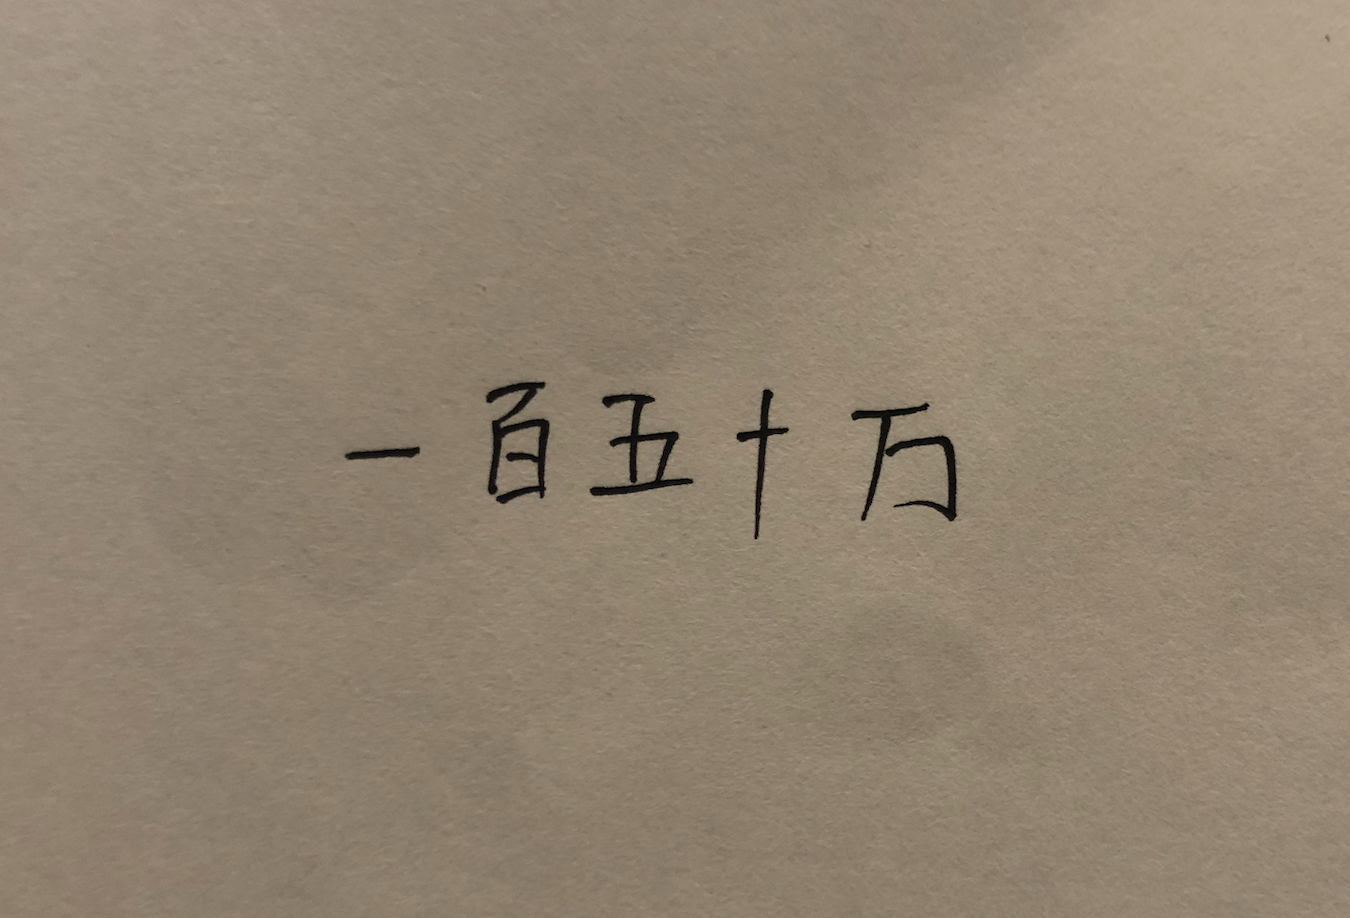 一百五十万